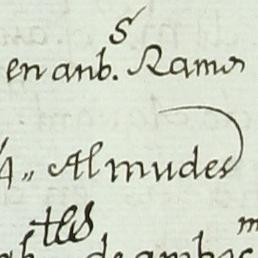 en anb.s Ramos
4,, Almudes
tles de ambas